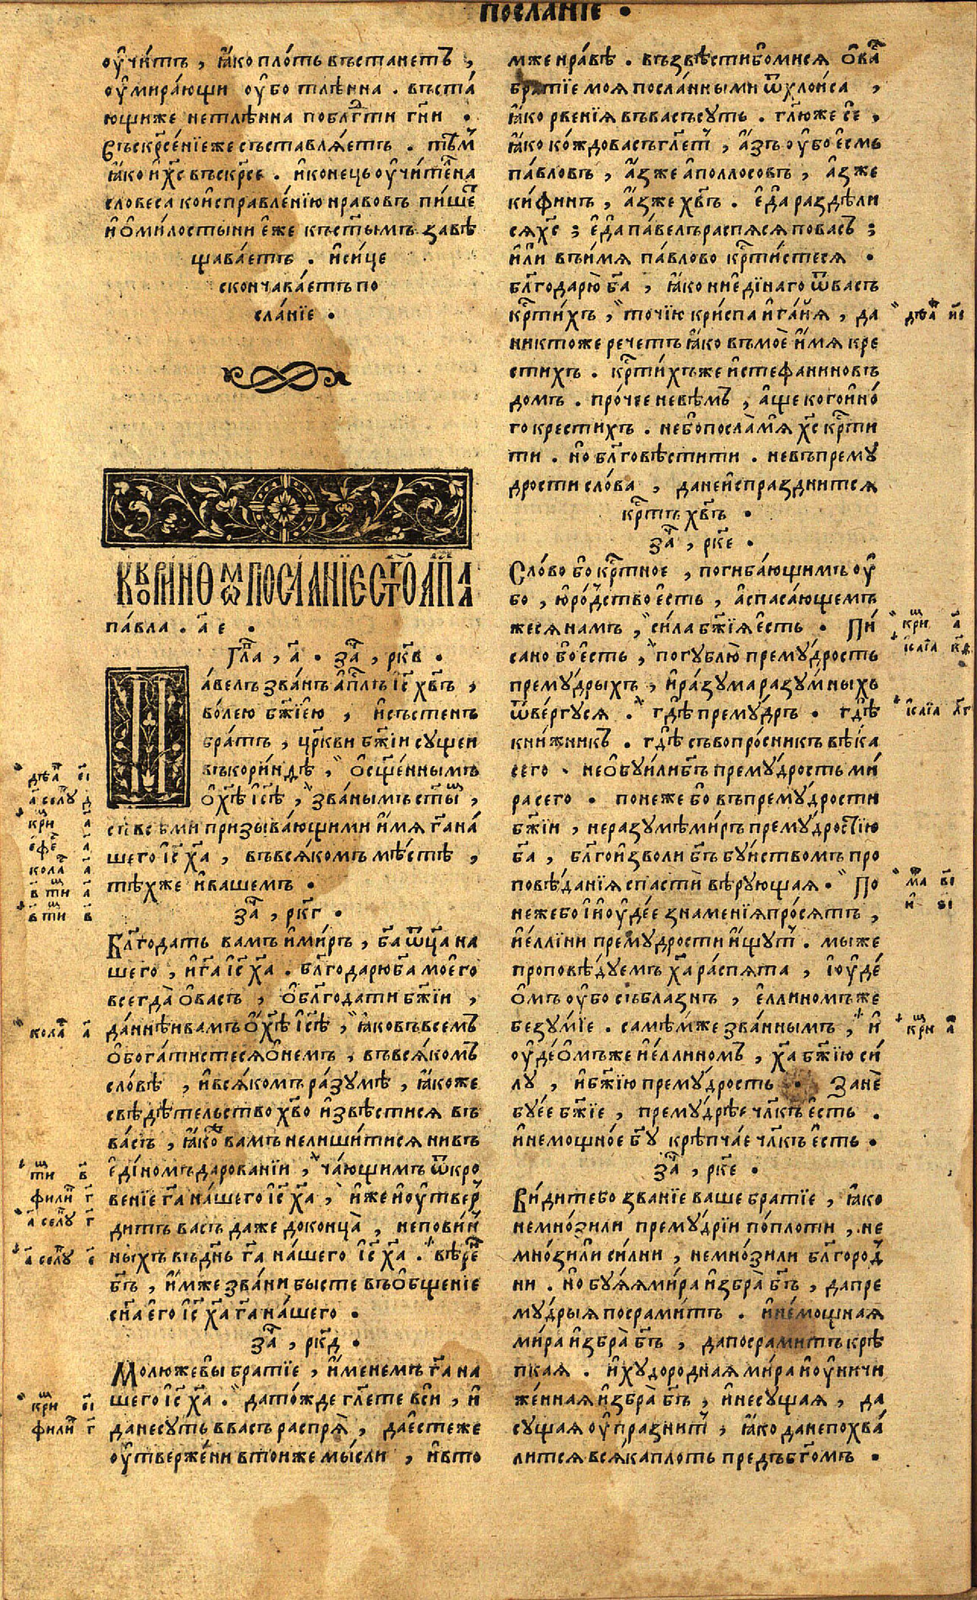 ПОСЛАНІЕ .
оу҆чи́тъ , ꙗ҆́ко пло́ть въстанетъ ,
оу҆мира́ющи оу҆́бо тлѣ́нна . въста́
ющиже нетлѣ́нна побл҃гти гн҃и .
Въскр҃се́нїеже съставлѧ́етъ . тѣ́мже
ꙗ҆́ко и҆ хс҃ въскр҃се . и҆ коне́цъ оу҆чи́телна
словеса́ ко и҆справле́нїю нра́вовъ пи́шетъ
и҆ ѡ҆ ми́лостыни е҆́же къ ст҃ымъ завѣ
щава́етъ . и҆ си́це
сконча́ваетъ по
сла́нїе .
К КОРИНѲОМ ПОСЛАНЇЕ СТ҃ГО АП҃ЛА
па́вла . а҃ е .
Гла҃ , а҃ . за҃ , рк҃в .
Па́велъ зва́нъ а҆пл҃ъ і҆с҃ хв҃ъ ,
во́лею бж҃їею , и҆ състенъ
бра́тъ , цр҃кви бж҃їи сущеи
въ кори́нѳѣ , ѡ҆сщ҃е́ннымъ
ѡ҆ хѣ҃ і҆сѣ҃ , зва́нымъ ст҃ымъ ,
съ всѣ́ми призыва́ющими и҆́мѧ гд҃а на́
шего і҆с҃ ха҃ , въ всѧ́комъ мѣ́стѣ ,
тѣ́хже и҆ вашемъ .
за҃ , рк҃г .
Бл҃года́ть ва́мъ и҆ ми́ръ , бг҃а ѿц҃а на
шего , и҆ гд҃а і҆с҃ ха҃ . бл҃годарю̀ бг҃а моего̀
всегда̀ ѡ҆ ва́съ , ѡ҆ бл҃года́ти бж҃їи ,
да́ннѣи ва́мъ ѡ҆ хѣ҃ і҆сѣ҃ , ꙗ҆́ко въ всемъ
ѡ҆богати́стесѧ ѡ҆ не́мъ , въ всѧ́комъ
сло́вѣ , и҆ всѧ́комъ ра́зумѣ , ꙗ҆́коже
свѣдѣ́тельство хв҃о и҆звѣ́стисѧ въ
ва́съ , ꙗ҆́ко ва́мъ нелиши́тисѧ ни въ
е҆ди́номъ дарова́нїи , ча́ющимъ ѿкро
ве́нїе гд҃а на́шего і҆с҃ ха҃ , и҆́же и҆ оу҆твер
ди́тъ ва́съ да́же до конца̀ , неповин
ныхъ въ дн҃ь гд҃а на́шего і҆с҃ ха҃ . вѣ́ренъ
бг҃ъ , и҆́мже зва́ни бы́сте въ ѡ҆бще́нїе
сн҃а е҆го̀ і҆с҃ ха҃ гд҃а на́шего .
за҃ , рк҃д .
Молю́же вы̀ бра́тїе , и҆́менемъ гд҃а на
шего і҆с҃ ха҃ . да то́жде гл҃ете всѝ , и҆
да не су́ть в ва́съ ра́спрѧ , да е҆сте́же
оу҆твержени в то́иже мы́сли , и҆ в то
мже нра́вѣ . възвѣсти́бомисѧ ѡ҆ ва́съ
бра́тїе моѧ̀ посла́нными ѿ хлои́са ,
ꙗ҆́ко рве́нїѧ въ ва́съ су́ть . гл҃ю́же сѐ ,
ꙗ҆́ко ко́ждо ва́съ гл҃етъ , а҆́зъ оу҆́бо е҆смь
па́вловъ , а҆́зже а҆поллосо́въ , а҆́зже
ки́финъ , а҆́зже хв҃ъ . е҆да̀ раздѣли
сѧ хс҃ ; е҆да̀ па́велъ распѧ́сѧ по ва́съ ;
и҆́ли въ и҆́мѧ па́влово кр҃ти́стесѧ .
бл҃годарю̀ бг҃а , ꙗ҆́ко ни е҆ди́наго ѿ ва́съ
кр҃ти́хъ , то́чїю кри́спа и҆ га́иѧ , да
никто́же рече́тъ ꙗ҆́ко въ моѐ и҆́мѧ кре
сти́хъ . кр҃ти́хъже и҆ стефани́новъ
до́мъ . про́чее не вѣ́мъ , а҆́ще кого̀ и҆но́
го крести́хъ . небо̀ посла̀ мѧ̀ хс҃ кр҃ти
ти . но̀ бл҃говѣсти́ти . не въ прему́
дрости сло́ва , да не и҆спраздни́тсѧ
кр҃тъ хв҃ъ .
за҃ , рк҃е .
Сло́во бо кр҃тное , погиба́ющимъ оу҆́
бо , ю҆ро́дство е҆сть , а҆ спаса́ющем
жесѧ на́мъ , си́ла бж҃їѧ е҆сть . Пи́
сано бо е҆сть , погублю̀ прему́дрость
прему́дрыхъ , и҆ ра́зума разу́мныхъ
ѿве́ргусѧ . гдѣ̀ прему́дръ . гдѣ̀
кни́жникъ . гдѣ̀ съвопро́сникъ вѣ́ка
сего̀ . не ѡ҆буи́ли бг҃ъ прему́дрость ми́
ра сего̀ . поне́же бо въ прему́дрости
бж҃їи , неразумѣ̀ ми́ръ прему́дростїю
бг҃а , бл҃гои҆зво́ли бг҃ъ бу́йствомъ про
повѣ́данїѧ спастѝ вѣ́рующаѧ . По
не́жебо і҆ і҆оу҆де́е зна́менїѧ про́сѧтъ ,
и҆ е҆́ллини прему́дрости и҆́щутъ . мы́же
проповѣ́дуемъ ха҃ ра́спѧта , і҆оу҆де́
ѡ҆мъ оу҆́бо събла́знъ , е҆́ллиномъже
безу́мїе . самѣ́мже зва́ннымъ , і҆
оу҆де́ѡмъже и҆ е҆́ллиномъ , ха҃ бж҃їю си́
лу , и҆ бж҃їю прему́дрость . Занѐ
бу́ее бж҃їе , премудрѣ́е чл҃къ е҆сть .
и҆ немощно́е бг҃у крѣпча́е чл҃къ е҆сть .
за҃ , рк҃е .
Ви́дите бо зва́нїе ва́ше бра́тїе , ꙗ҆́ко
не мно́зили прему́дрїи по пло́ти , не
мно́зили си́лни , не мно́зили бл҃горо́д
ни . но̀ бу́ѧѧ ми́ра и҆збра̀ бг҃ъ , да пре
му́дрыѧ посрами́тъ . и҆ не́мощнаѧ
ми́ра и҆збра̀ бг҃ъ , да посрами́тъ крѣ́
пкаѧ . и҆ худоро́днаѧ ми́ра и҆ оу҆ничи
же́ннаѧ и҆збра̀ бг҃ъ , и҆ не су́щаѧ , да
су́щаѧ оу҆праз́нитъ , ꙗ҆́ко да не похва́
литсѧ всѧ́ка пло́ть предъ бг҃омъ .